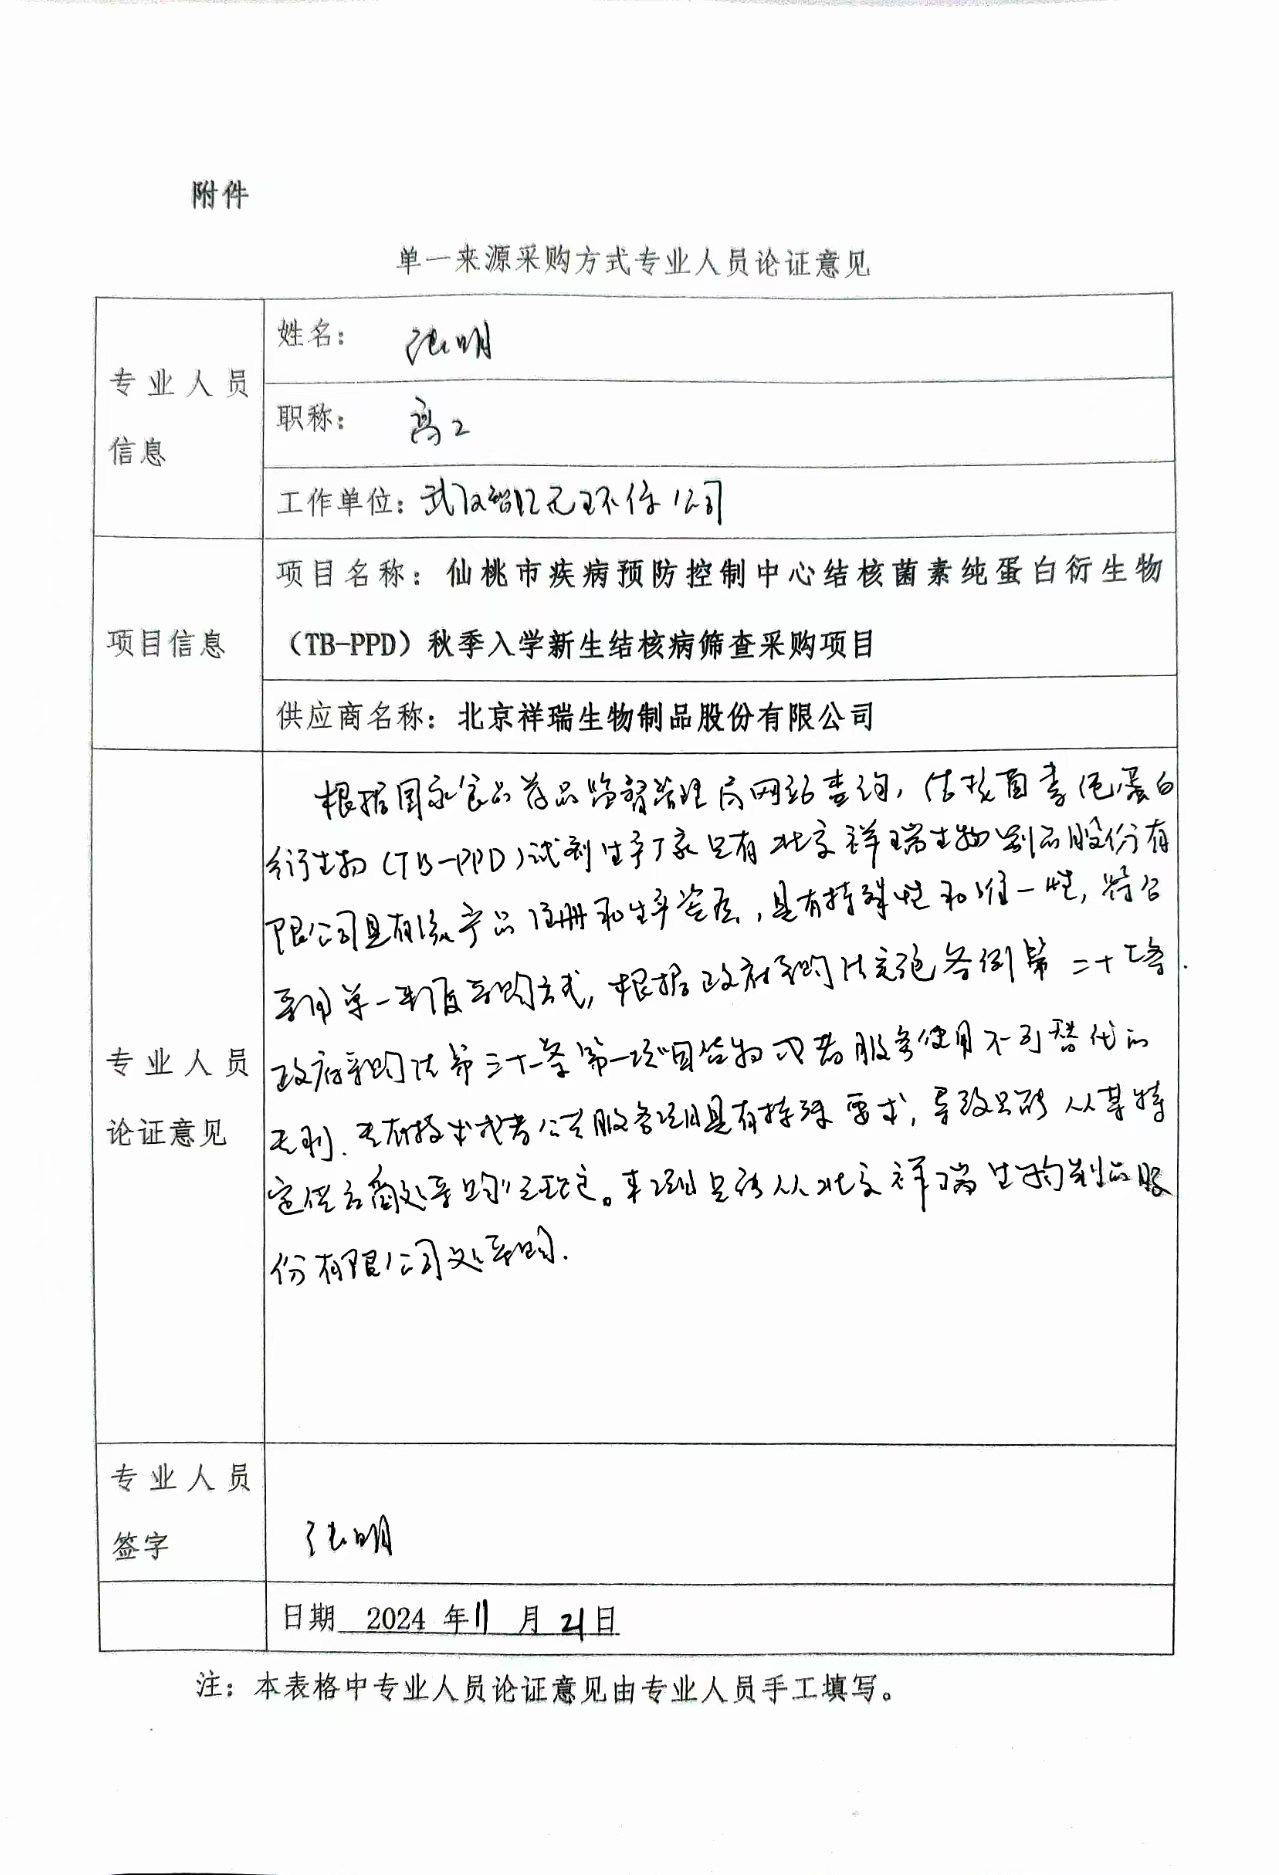 附件
单一来源采购方式专业人员论证意见
专业人员
信息
姓名： 张明
职称： 高工
工作单位：武汉智亿元环保公司
项目信息
项目名称：仙桃市疾病预防控制中心结核菌素纯蛋白衍生物
（TB-PPD）秋季入学新生结核病筛查采购项目
供应商名称：北京祥瑞生物制品股份有限公司
专业人员
论证意见
根据国家食品药品监督管理局网站查询，结核菌素纯蛋白
衍生物(TB-PPD)试剂生产厂家只有北京祥瑞生物制品股份有
限公司具有该产品注册和生产资质，具有特殊性和唯一性，符合
采用单一来源采购方式，根据政府采购法实施条例第二十七条.
政府采购法第三十一条第一项"因货物或者服务使用不可替代的
专利、专有技术或者公共服务项目具有特殊要求，导致只能从某特
定供应商处采购"之规定。本项目只能从北京祥瑞生物制品股
份有限公司处采购.
专业人员
签字
张明
日期 2024 年11 月 21日
注：本表格中专业人员论证意见由专业人员手工填写。